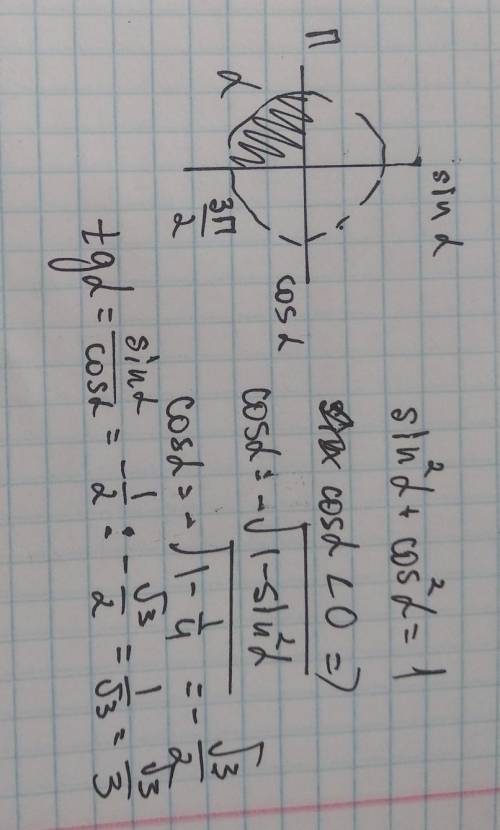 sin α
π
α
3π/2
cos α
sin²α + cos²α = 1
cosα < 0 =>
cosα = -√(1-sin²α)
cosα = -√(1-1/4) = -√3/2
tgα = sinα/cosα = -1/2 : -√3/2 = 1/√3 = √3/3